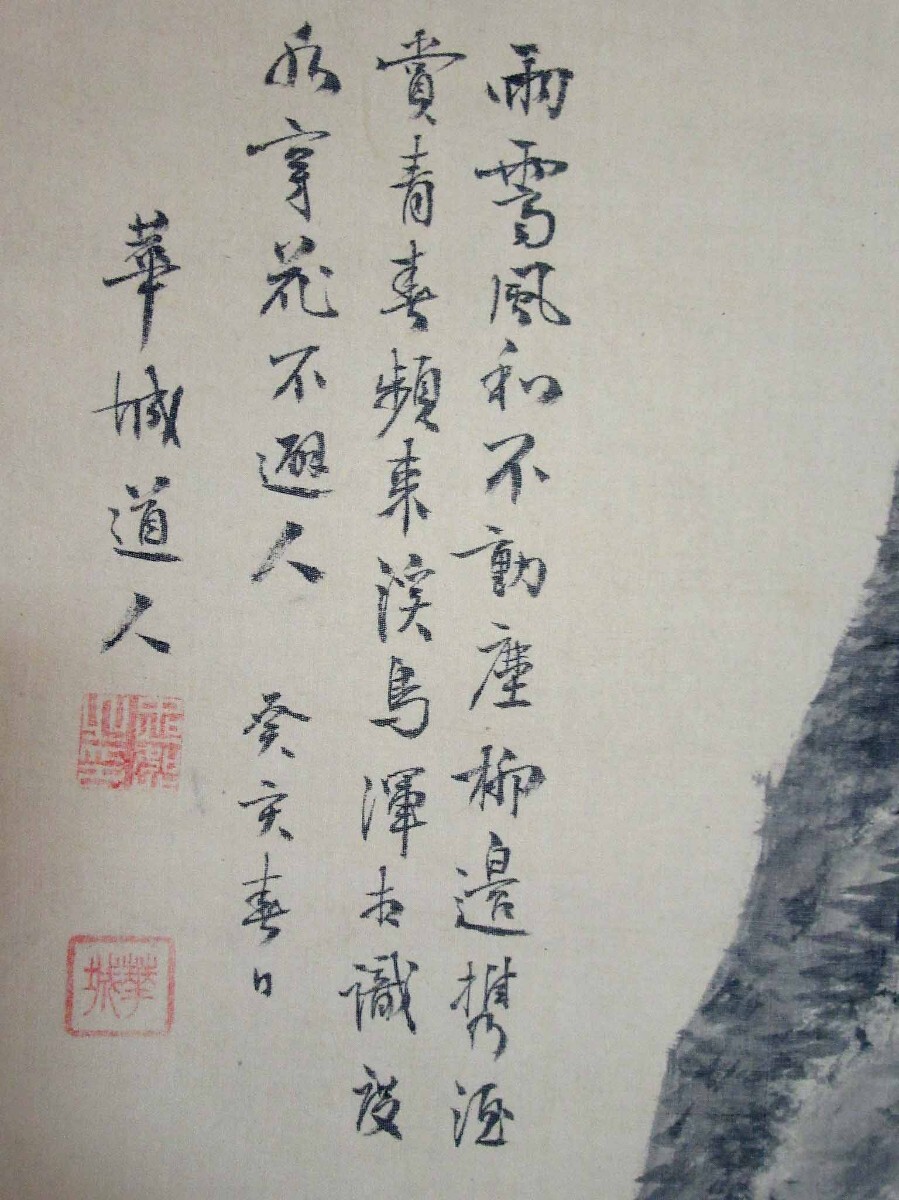 雨霽風和不動塵柳邊携酒
賞青春頻来溪鳥渾相識度
水穿花不避人 癸亥春日
華城道人
華城